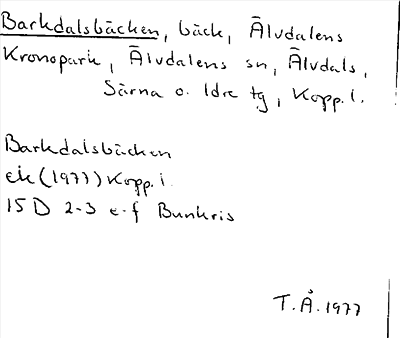 Barkdalsbäcken, bäck, Älvdalens
Kronopark, Älvdalens sn, Älvdals,
Särna o. Idre tg, Kopp. l.
Barkdalsbäcken
ek (1977) Kopp. l.
15 D 2-3 e-f Bunkris
T. Å. 1977